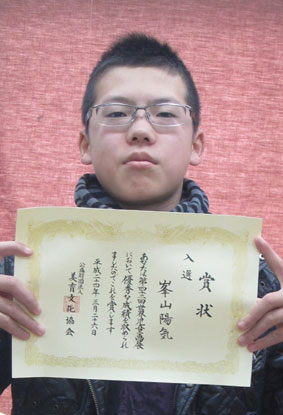 賞状
入選
峯山陽気
あなたは第四十二回世界児童画展
において優秀な成績を収められ
ましたのでこれを賞します
平成二十四年三月二十六日
公益財団法人
美育文化協会